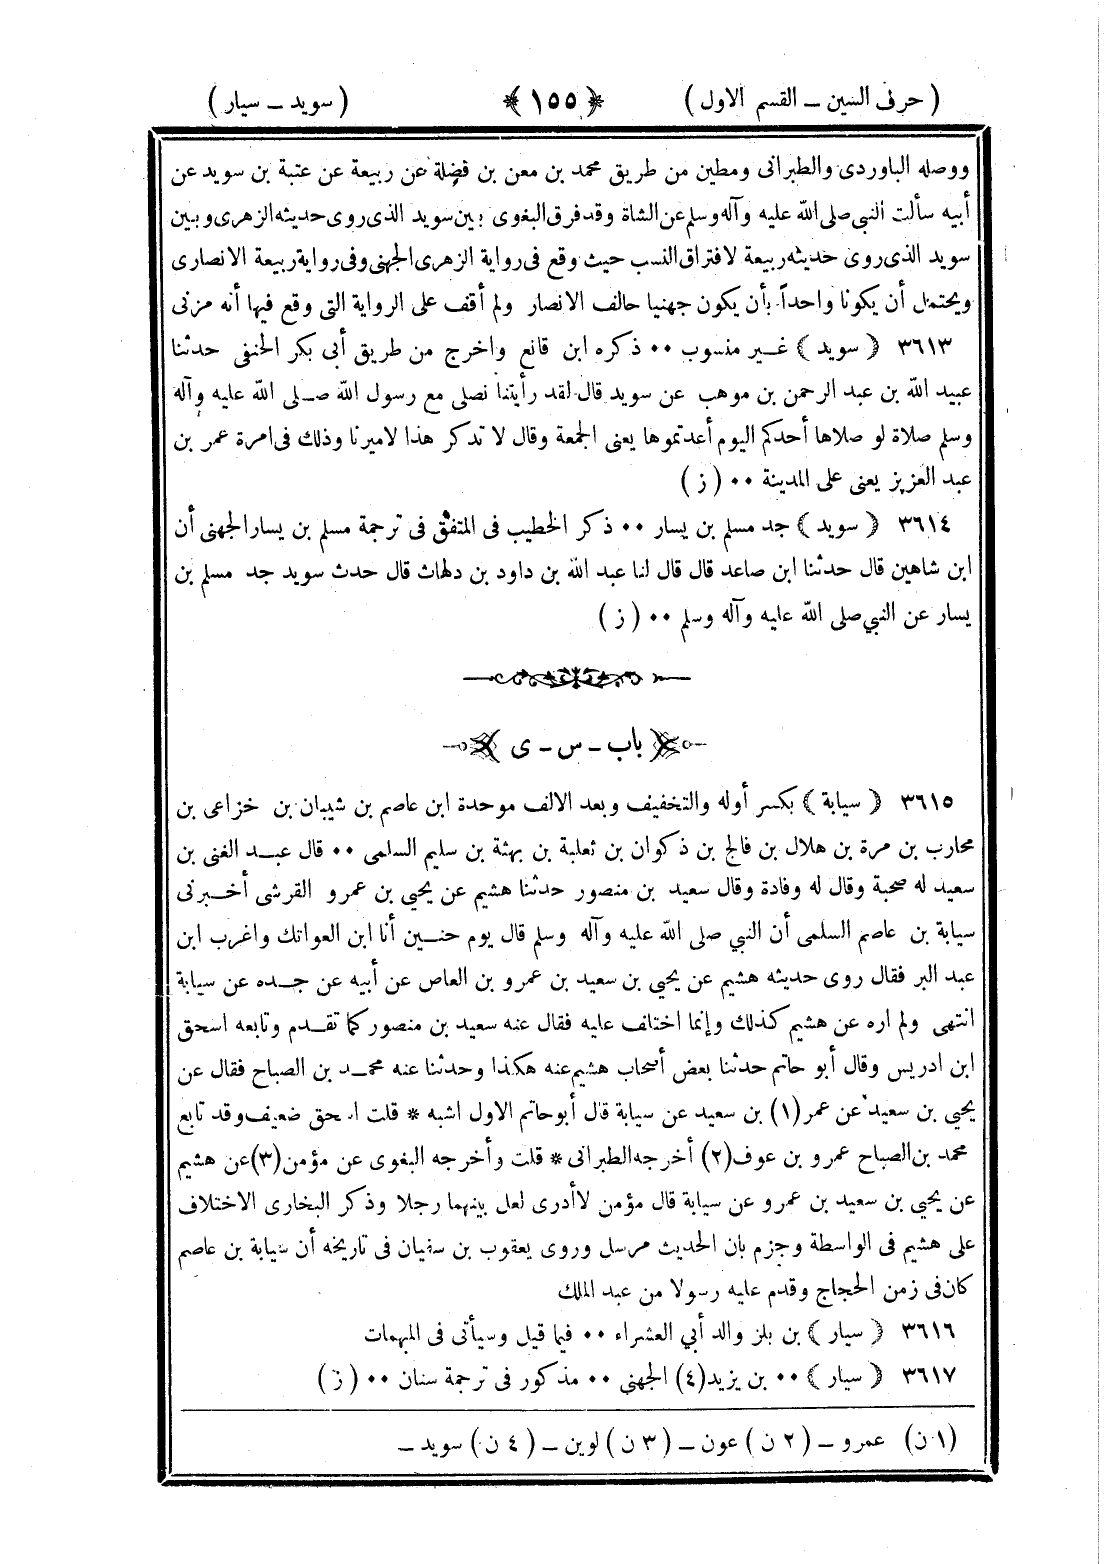 ( حرف السين – القسم الاول ) ﴿ ١٥٥ ﴾ ( سويد – سيار )
ووصله الباوردى والطبرانى ومطين من طريق محمد بن معن بن فضلة عن ربيعة عن عتبة بن سويد عن
أبيه سألت النبي صلى الله عليه وآله وسلم عن الشاة وقد فرق البغوى بين سويد الذى روى حديثه الزهرى وبين
سويد الذى روى حديثه ربيعة لافتراق النسب حيث وقع فى رواية الزهرى الجهنى وفى رواية ربيعة الانصارى
ويحتمل أن يكونا واحداً بأن يكون جهنيا حالف الانصار ولم أقف على الرواية التى وقع فيها أنه مزنى
٣٦١٣ ﴿ سويد ﴾ غير منسوب ٠٠ ذكره ابن قانع واخرج من طريق أبى بكر الحنفى حدثنا
عبيد الله بن عبد الرحمن بن موهب عن سويد قال لقد رأيتنا نصلى مع رسول الله صلى الله عليه وآله
وسلم صلاة لو صلاها أحدكم اليوم أعدتموها يعنى الجمعة وقال لا تدكر هذا لاميرنا وذلك فى امرة عمر بن
عبد العزيز يعنى على المدينة ٠٠ ( ز )
٣٦١٤ ﴿ سويد ﴾ جد مسلم بن يسار ٠٠ ذكر الخطيب فى المتفق فى ترجمة مسلم بن يسار الجهنى أن
ابن شاهين قال حدثنا ابن صاعد قال قال لنا عبد الله بن داود بن دلهاث قال حدث سويد جد مسلم بن
يسار عن النبي صلى الله عليه وآله وسلم ٠٠ ( ز )
باب – س – ى
٣٦١٥ ﴿ سيابة ﴾ بكسر أوله والتخفيف وبعد الالف موحدة ابن عاصم بن شيبان بن خزاعى بن
محارب بن مرة بن هلال بن فالج بن ذكوان بن ثعلبة بن بهثة بن سليم السلمى ٠٠ قال عبد الغنى بن
سعيد له صحبة وقال له وفادة وقال سعيد بن منصور حدثنا هشيم عن يحيي بن عمرو القرشى أخبرنى
سيابة بن عاصم السلمى أن النبي صلى الله عليه وآله وسلم قال يوم حنين أنا ابن العواتك واغرب ابن
عبد البر فقال روى حديثه هشيم عن يحيي بن سعيد بن عمرو بن العاص عن أبيه عن جده عن سيابة
انتهى ولم اره عن هشيم كذلك وإنما اختلف عليه فقال عنه سعيد بن منصور كما تقدم وتابعه اسحق
ابن ادريس وقال أبو حاتم حدثنا بعض أصحاب هشيم عنه هكذا وحدثنا عنه محمد بن الصباح فقال عن
يحيي بن سعيد عن عمر (١) بن سعيد عن سيابة قال أبو حاتم الاول اشبه * قلت اسحق ضعيف وقد تابع
محمد بن الصباح عمرو بن عوف (٢) أخرجه الطبرانى * قلت وأخرجه البغوى عن مؤمن (٣) عن هشيم
عن يحيي بن سعيد بن عمرو عن سيابة قال مؤمن لا أدرى لعل بينهما رجلا وذكر البخارى الاختلاف
على هشيم فى الواسطة وجزم بان الحديث مرسل وروى يعقوب بن سفيان فى تاريخه أن سيابة بن عاصم
كان فى زمن الحجاج وقدم عليه رسولا من عبد الملك
٣٦١٦ ﴿ سيار ﴾ بن بلز والد أبي العشراء ٠٠ فيما قيل وسيأتى فى المبهمات
٣٦١٧ ﴿ سيار ﴾ ٠٠ بن يزيد (٤) الجهنى ٠٠ مذكور فى ترجمة سنان ٠٠ ( ز )
(١ ن) عمرو – ( ٢ ن ) عون – ( ٣ ن ) لوين – ( ٤ ن ) سويد –